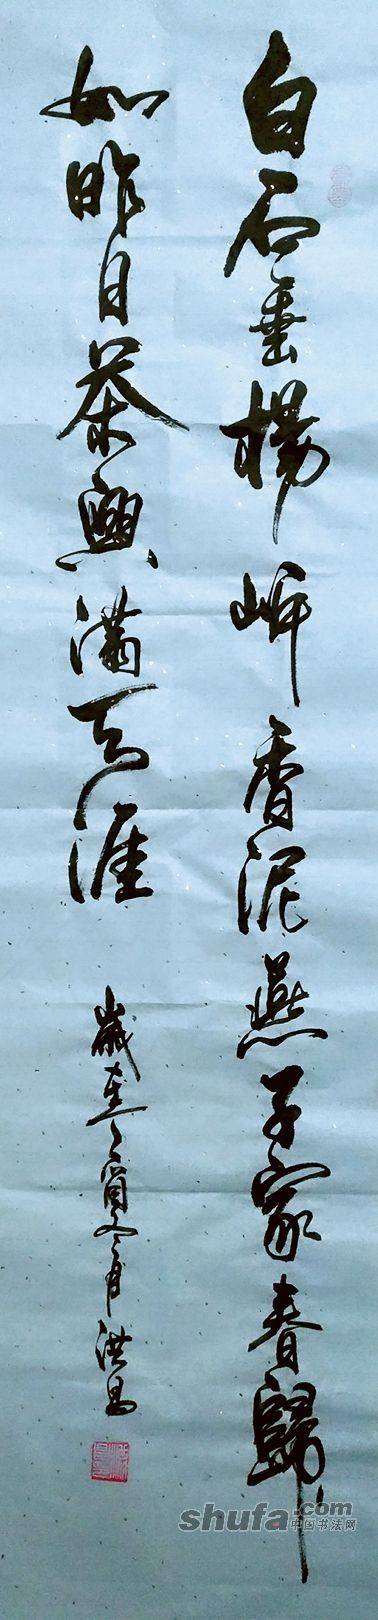 白石垂楊岸香泥燕子家春歸
如昨日茶興滿天涯
歲在丁酉冬月洪昌
shufa.com
中国书法网